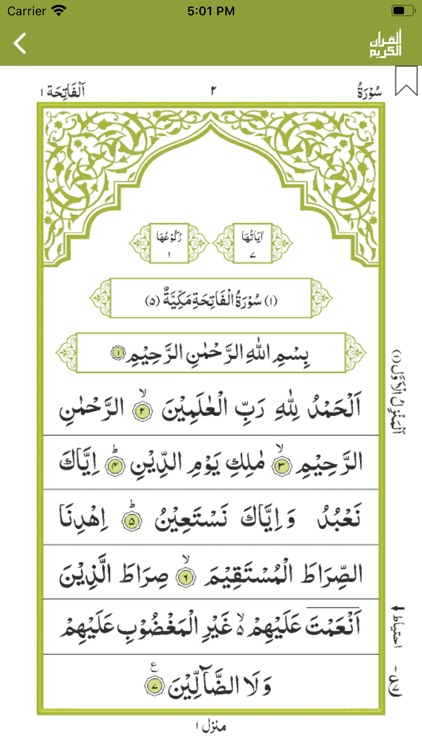 Carrier 5:01 PM
القرآن الكريم
سُوْرَةُ ٢ اَلْفَاتِحَة ١
اٰيَاتُهَا ٧ رُكُوْعُهَا ١
(١) سُوْرَةُ الْفَاتِحَةِ مَكِّيَّةٌ (٥)
بِسْمِ اللّٰهِ الرَّحْمٰنِ الرَّحِيْمِ ١
اَلْحَمْدُ لِلّٰهِ رَبِّ الْعٰلَمِيْنَ ۙ ٢ الرَّحْمٰنِ
الرَّحِيْمِ ۙ ٣ مٰلِكِ يَوْمِ الدِّيْنِ ؕ ٤ اِيَّاكَ
نَعْبُدُ وَاِيَّاكَ نَسْتَعِيْنُ ؕ ٥ اِهْدِنَا
الصِّرَاطَ الْمُسْتَقِيْمَ ۙ ٦ صِرَاطَ الَّذِيْنَ
اَنْعَمْتَ عَلَيْهِمْ ۙ۬ غَيْرِ الْمَغْضُوْبِ عَلَيْهِمْ
وَلَا الضَّآلِّيْنَ ٧ ع
اَلْمَنْزِلُ الْاَوَّلُ (١)
احتياط
منزل ١